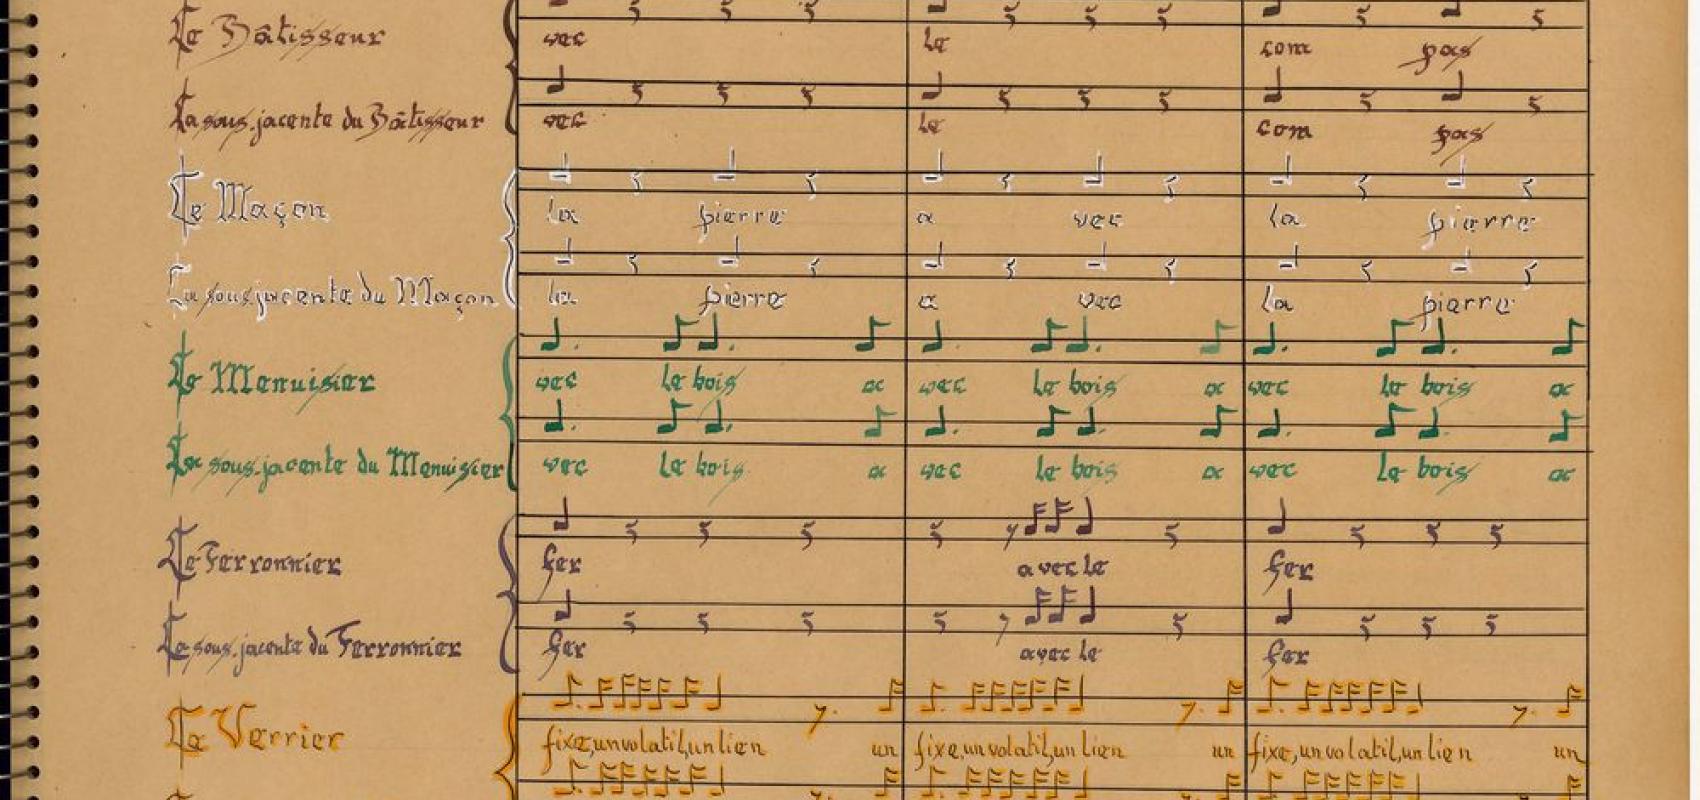 Le Bâtisseur vec le com pas
La sous-jacente du Bâtisseur vec le com pas
Le Maçon la pierre a vec la pierre
La sous jacente du Maçon la pierre a vec la pierre
Le Menuisier vec le bois a vec le bois a vec le bois a
La sous-jacente du Menuisier vec le bois a vec le bois a vec le bois a
Le Ferronnier fer avec le fer
La sous-jacente du Ferronnier fer avec le fer
Le Verrier fixe, un volatil, un lien un fixe, un volatil, un lien un fixe, un volatil, un lien un